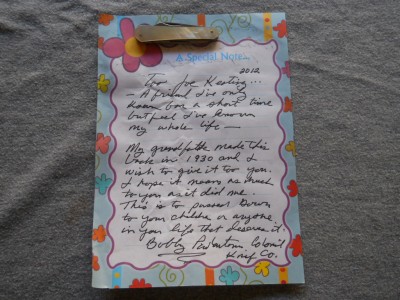 A Special Note...
2012
Too Joe Keating...
- A friend I've only
known for a short time
but feel I've known
my whole life -
My grandfather made this
knife in 1930 and I
wish to give it too you.
I hope it means as much
to you as it did me.
This is to passed down
to your children or anyone
in your life that deserve it.
Bobby Colonial
Knife Co.